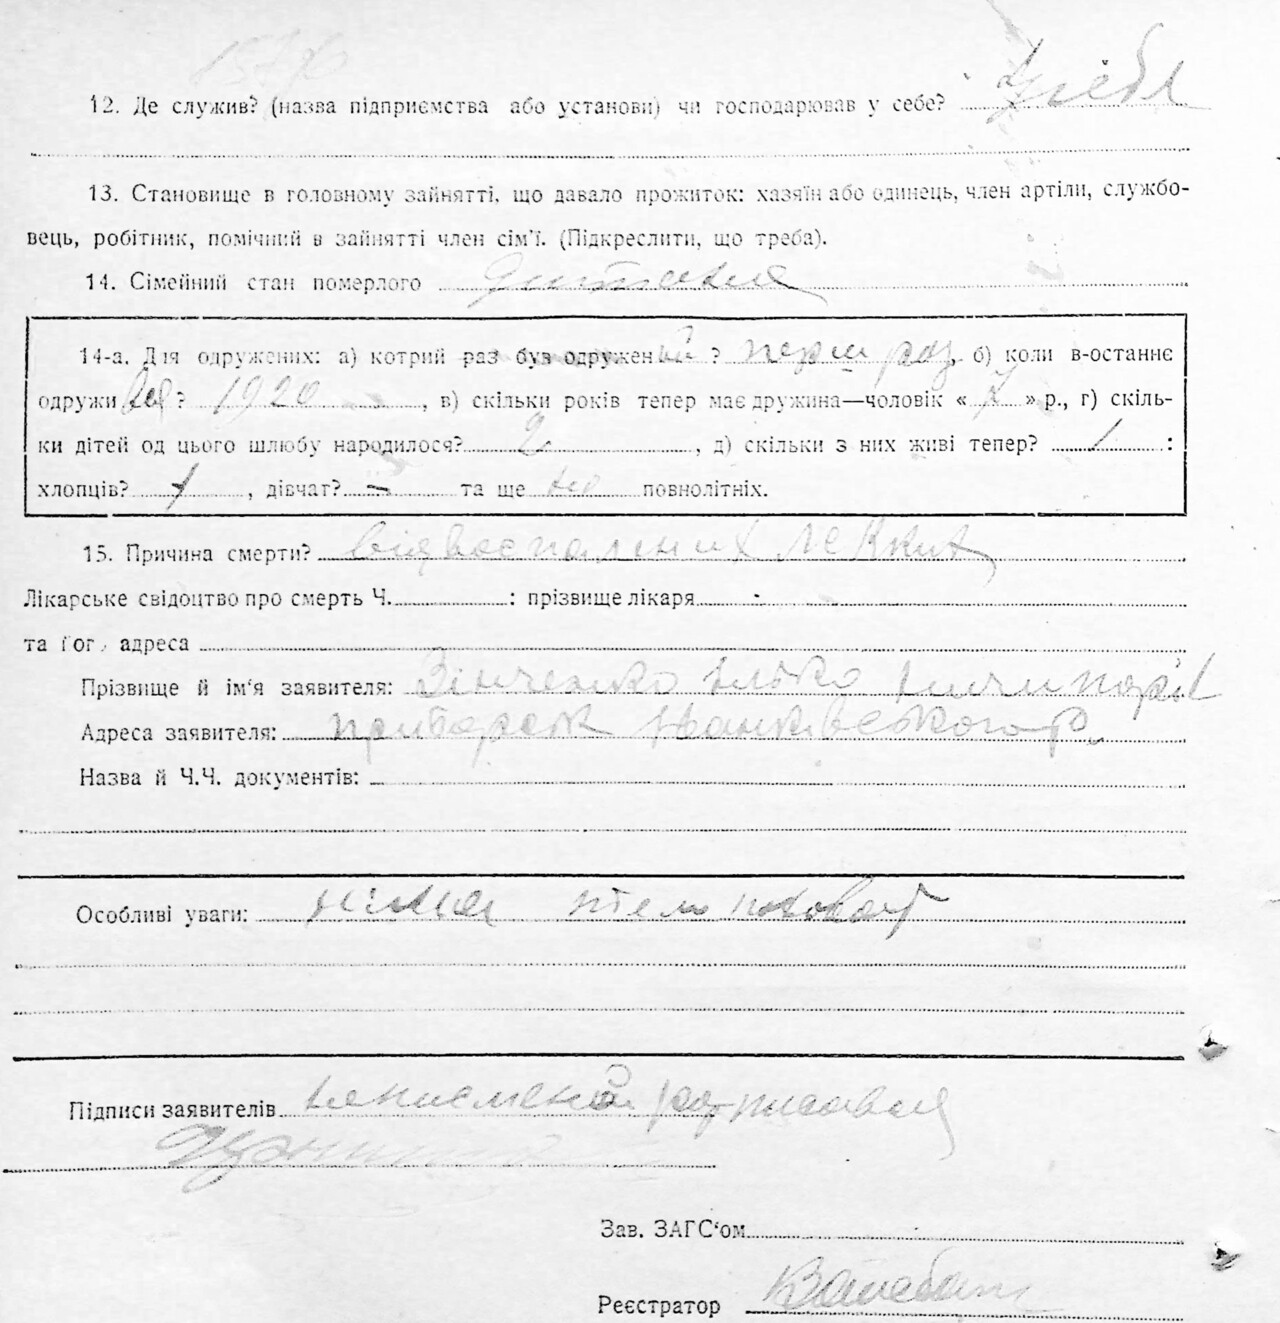 12. Де служив? (назва підприємства або установи) чи господарював у себе? У себе
13. Становище в головному зайнятті, що давало прожиток: хазяїн або одинець, член артіли, службо-
вець, робітник, помічний в зайнятті член сім'ї. (Підкреслити, що треба).
14. Сімейний стан померлого
14-а. Для одружених: а) котрий раз був одружений? перш раз, б) коли в-останнє
одружився? 1920, в) скільки років тепер має дружина—чоловік « » р., г) скіль-
ки дітей од цього шлюбу народилося? 2, д) скільки з них живі тепер? 1:
хлопців? 1, дівчат? — та ще повнолітніх.
15. Причина смерти? від воспаления легких
Лікарське свідоцтво про смерть Ч. : прізвище лікаря
та його адреса
Прізвище й ім'я заявителя: Зінченко
Адреса заявителя: Приборск Іванківського р.
Назва й Ч.Ч. документів: —
Особливі уваги: тело
Підписи заявителів
Зав. ЗАГС'ом
Реєстратор